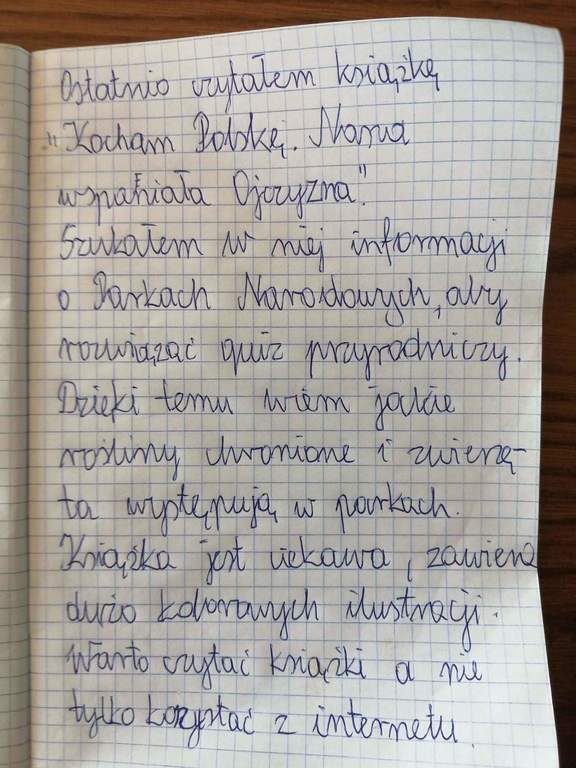 Ostatnio czytałem książkę
"Kocham Polskę. Nasza
wspaniała Ojczyzna".
Szukałem w niej informacji
o Parkach Narodowych, aby
rozwiązać quiz przyrodniczy.
Dzięki temu wiem jakie
rośliny chronione i zwierzę-
ta występują w parkach.
Książka jest ciekawa, zawiera
dużo kolorowych ilustracji.
Warto czytać książki a nie
tylko korzystać z internetu.